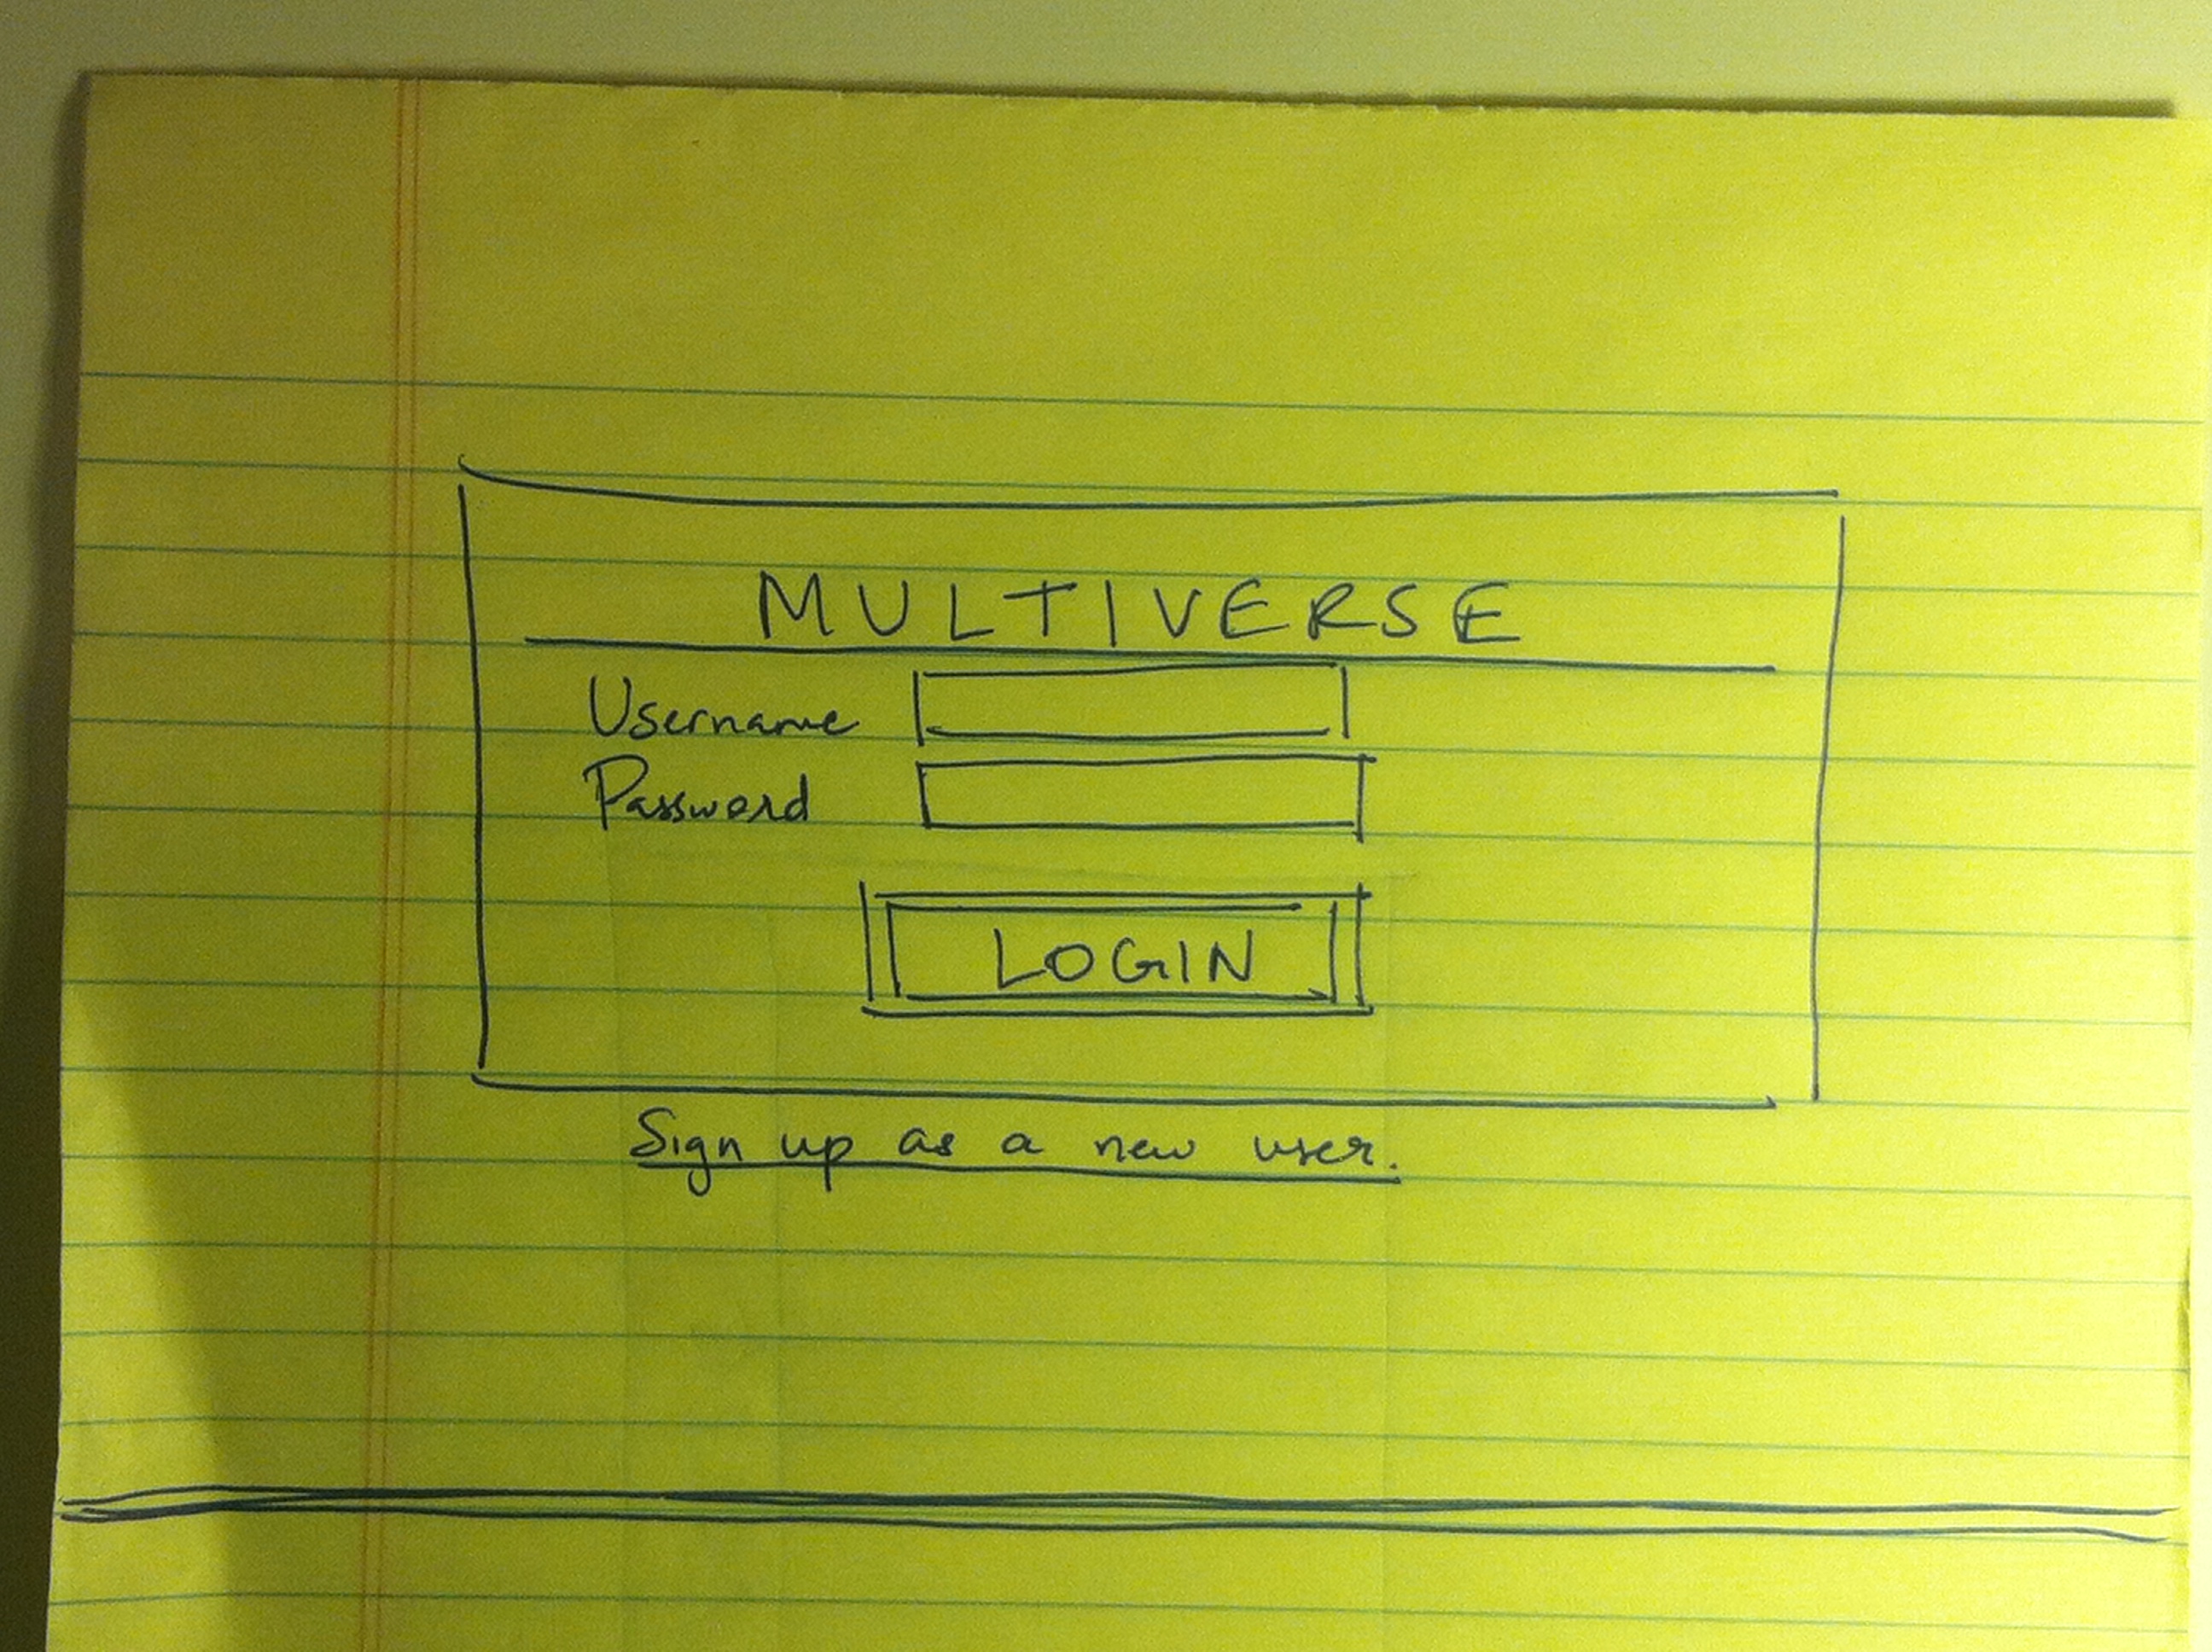 MULTIVERSE
Username
Password
LOGIN
Sign up as a new user.